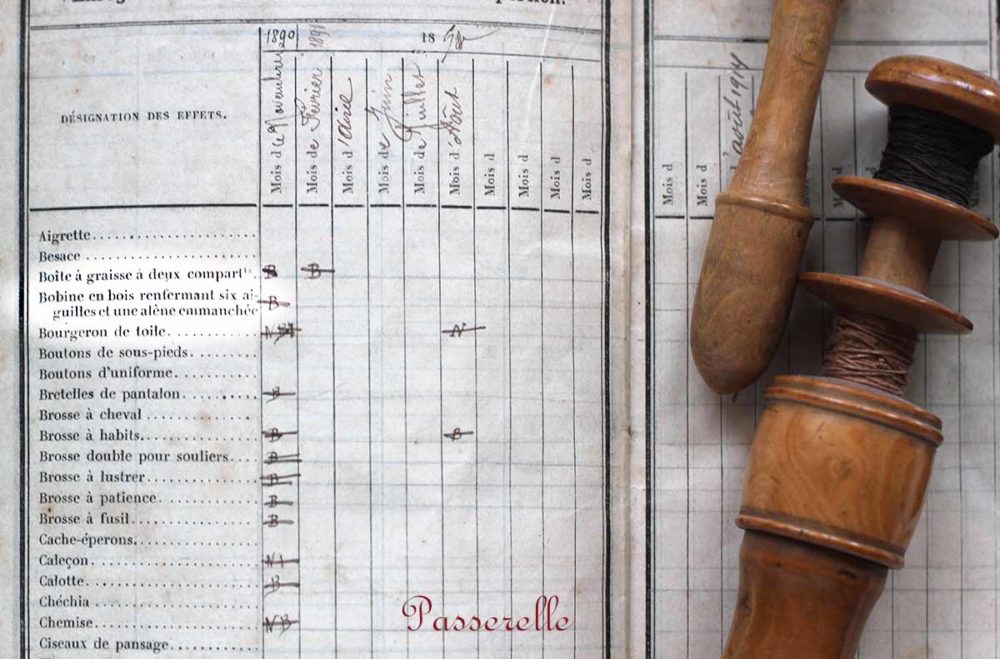 1890 1891 18
DÉSIGNATION DES EFFETS.
Mois de Novembre
Mois de Février
Mois d'avril
Mois de Juin
Mois de Juillet
Mois d'Août
Mois d
Mois d
Mois d
Mois d
Aigrette
Besace
Boîte à graisse à deux compartts. B B
Bobine en bois renfermant six ai- B
guilles et une alène emmanchée
Bourgeron de toile N
Boutons de sous-pieds
Boutons d'uniforme
Bretelles de pantalon B
Brosse à cheval
Brosse à habits B B
Brosse double pour souliers B
Brosse à lustrer B
Brosse à patience B
Brosse à fusil B
Cache-éperons
Caleçon N1
Calotte B
Chéchia
Chemise NB
Ciseaux de pansage
Mois d
Mois d
d'avril 1914
Passerelle